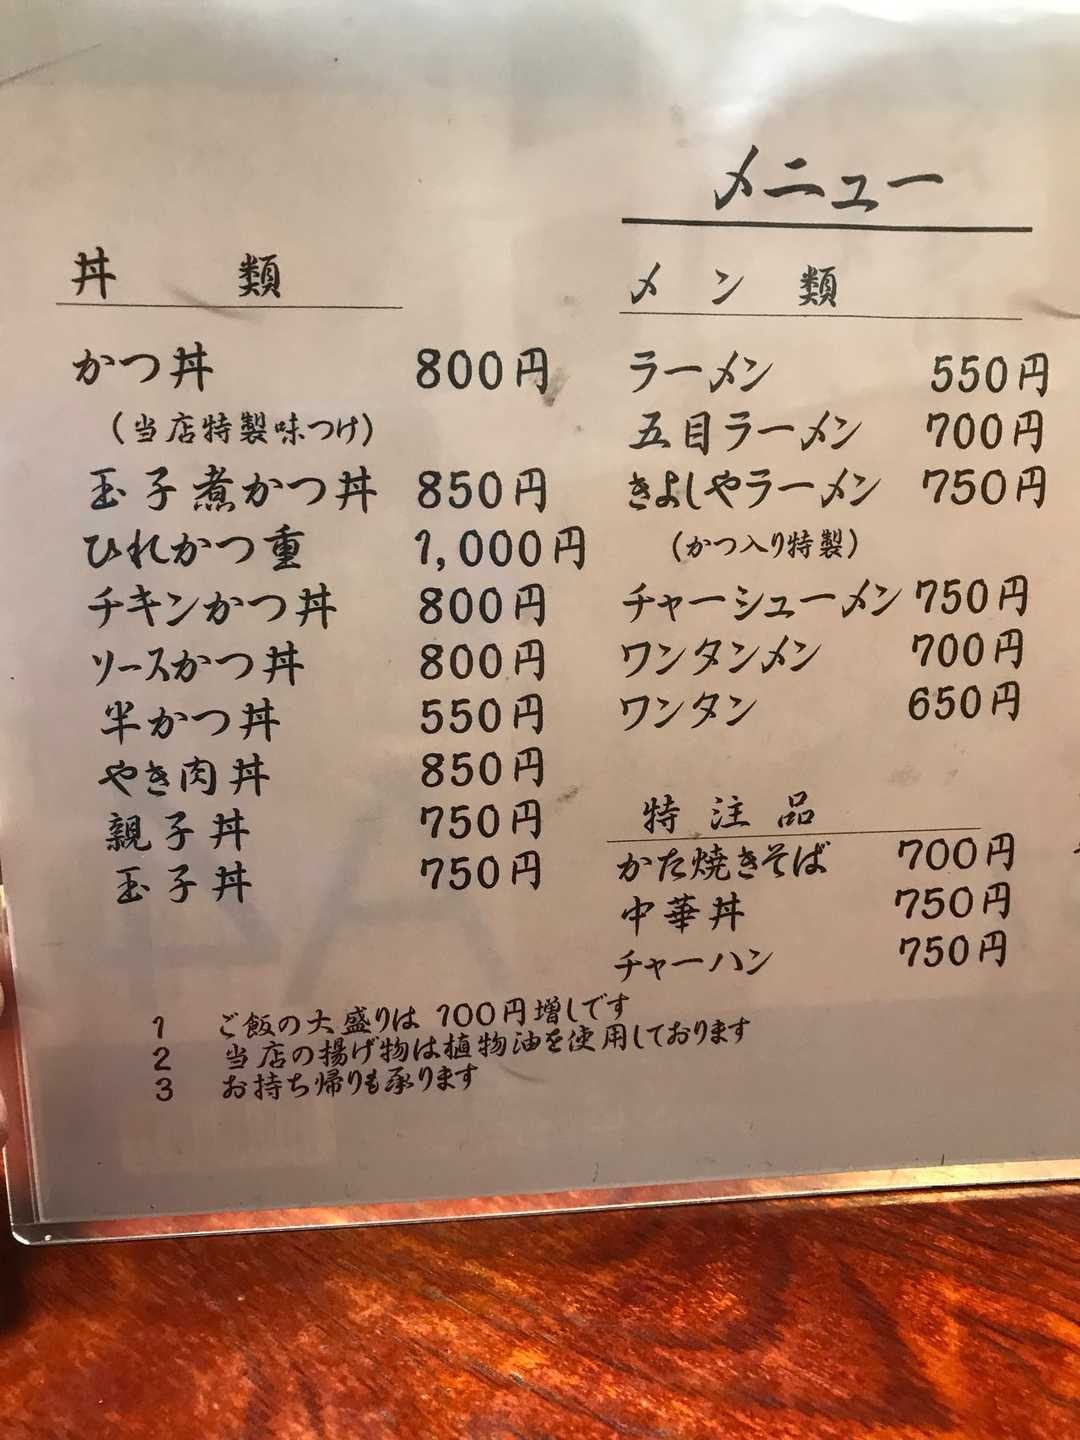 メニュー
丼 類
かつ丼 800円
（当店特製味つけ）
玉子煮かつ丼 850円
ひれかつ重 1,000円
チキンかつ丼 800円
ソースかつ丼 800円
半かつ丼 550円
やき肉丼 850円
親子丼 750円
玉子丼 750円
メン類
ラーメン 550円
五目ラーメン 700円
きよしやラーメン 750円
（かつ入り特製）
チャーシューメン 750円
ワンタンメン 700円
ワンタン 650円
特注品
かた焼きそば 700円
中華丼 750円
チャーハン 750円
1 ご飯の大盛りは 100円増しです
2 当店の揚げ物は植物油を使用しております
3 お持ち帰りも承ります